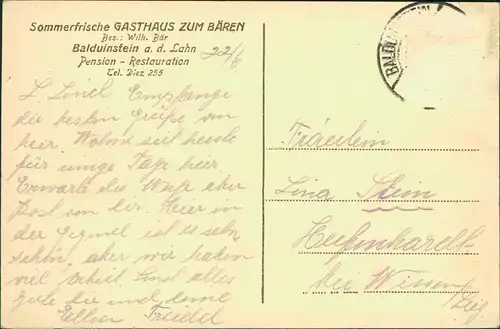 Sommerfrische GASTHAUS ZUM BÄREN
Bes.: Wilh. Bär
Balduinstein a. d. Lahn
Pension - Restauration
Tel. Diez 255
22/6
BALDUINSTEIN
L. Empfange
die besten Grüße von
hier. Wohne seit heute
für einige Tage hier.
Erwarte die aber
Post von dir. Hier in
der Gegend ist es sehr
schön, aber wir haben
viel alles
gute dir und deine
Eltern Friedel
Fräulein
Lina Stein
bei Wissen
Sieg.